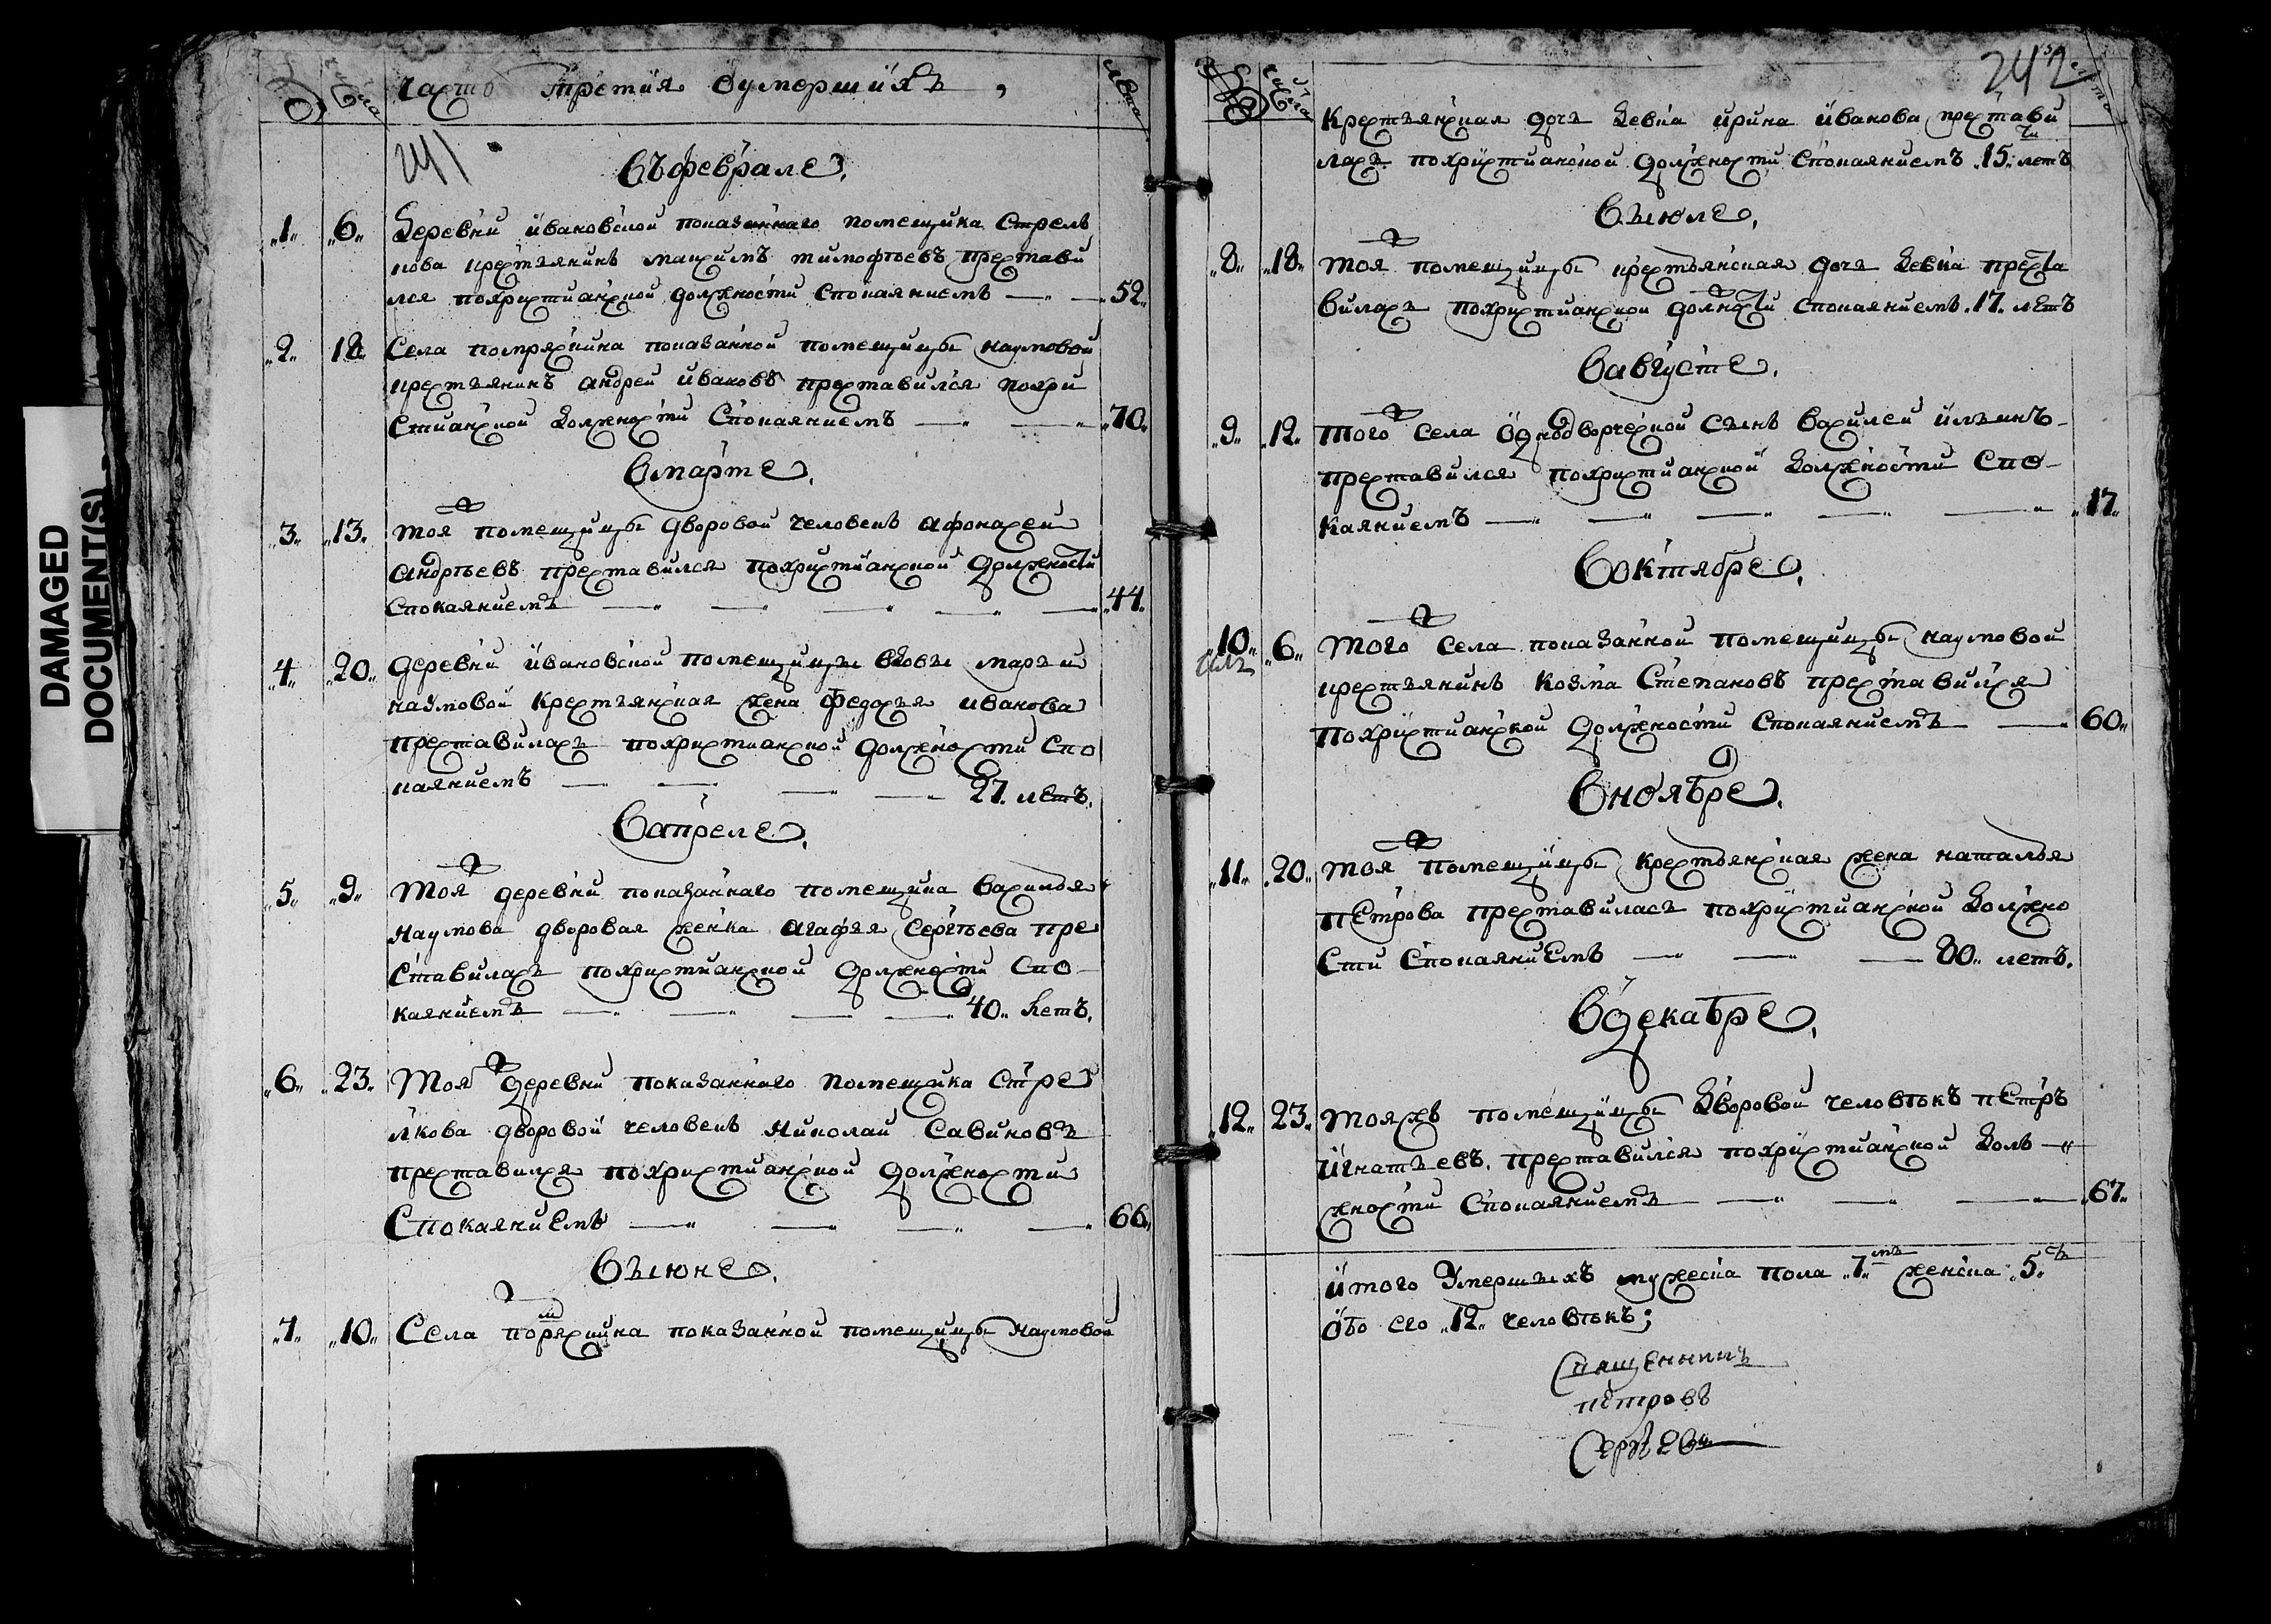 DAMAGED
DOCUMENT(S)
числа часть третия оумершихъ, лета
241
въ феврале,
"1" "6" Деревни ивановской показаннаго помещика Стрель
кова крестьянинъ максимъ тимофѣевъ престави
лся похристианской должности Спокаяниемъ "52"
"2" 18" Села помряскина показанной помещицы наумовой
крестьянинъ андрей ивановъ преставился похри
Стианской должности Спокаяниемъ "70"
Вмарте,
"3" "13" тоя помещицы дворовой человекъ афонасей
андрѣевъ преставился похристианской должности
Спокаяниемъ "44"
"4" "20" деревни ивановской помещицы вдовы марьи
наумовой крестьянская жена федосья иванова
преставилась похристианской должности Спо
каяниемъ 27. летъ.
Вапреле,
"5" "9" тоя деревни показаннаго помещика василья
наумова дворовая женка агафья сергѣева пре
ставилась похристианской должности спо
каяниемъ 40" летъ,
"6" "23" Тоя деревни показаннаго помещика стре
лкова дворовой человекъ николай Савиновъ
преставился похристианской должности
Спокаяниемъ 66"
Въ июне,
"7" "10" Села поряскина показанной помещицы наумовой
242
числа лето
крестьянская дочь девка ирина иванова престави
лась похристианской должности Спокаяниемъ "15" ти летъ
Въ июле,
"8" "18" тоя помещицы крестьянская дочя девка преста
вилась похристианской должности спокаяниемъ. 17. летъ
Вавгусте,
"9" "12" того села однодворческой сынъ василей ильинъ
преставился похристианской должности спо
каяниемъ "17"
Воктябре,
"10" "6" того села показанной помещицы наумовой
крестьянинъ козма Степановъ преставился
похристианской должности спокаяниемъ 60"
Вноябре,
"11" "20" тоя помещицы крестьянская жена наталья
пЕтрова преставилась похристианской должно
Сти СпокаяниЕмъ 80" летъ.
Вдекабре,
"12" 23" тояжъ помещицы дворовой человѣкъ пЕтръ
игнатьевъ. преставился похристианской доль
жности Спокаяниемъ "67"
итого умершыхъ мужеска пола "7" мь женска "5" ть
обо его "12" человѣкъ;
Священникъ
пётровъ
Сергѣевъ